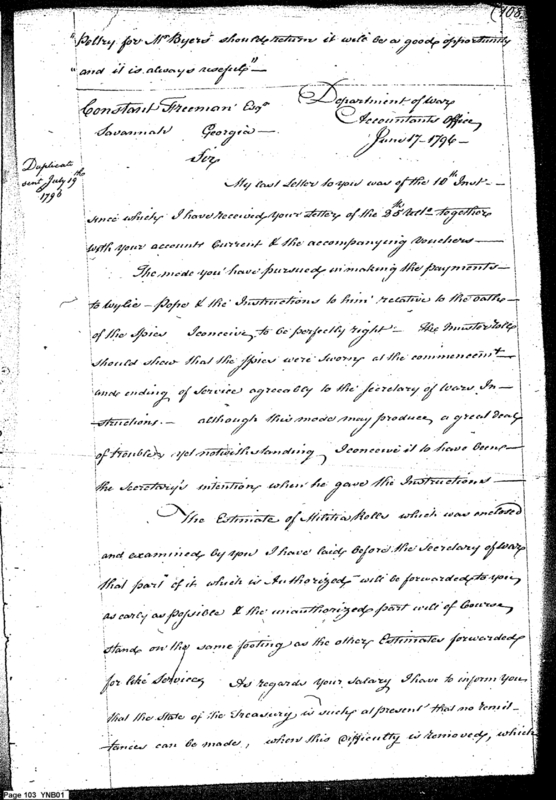 (103
"Peltry for Mr Byers should return it will be a good opportunity
"and it is always useful" —
Constant Freeman Esqr
Savannah Georgia —
Department of War
Accountants Office
June 17 - 1796
Sir
Duplicate
sent July 19th
1796
My last Letter to you was of the 10th Inst —
since which I have received your Letter of the 25th Ulto together
with your account Current & the accompanying Vouchers —
The mode you have pursued in making the payments —
to Wylie - Pope & the Instructions to him relative to the oaths
of the Spies I conceive to be perfectly right — The Muster rolls
should shew that the Spies were sworn at the commencemt —
and ending of Service agreeably to the Secretary of Wars In—
structions — although this mode may produce a great deal
of trouble, yet notwithstanding, I conceive it to have been —
the Secretary's intention when he gave the Instructions —
The Estimate of Militia Rolls which was enclosed
and examined by you I have laid before the Secretary of War
that part of it which is Authorized will be forwarded to you
as early as possible & the unauthorized part will of Course
stand on the same footing as the other Estimates forwarded
for like Service, As regards your Salary I have to inform you
that the State of the Treasury is such at present that no remit-
tances can be made, when this difficulty is removed, which
Page 103 YNB01